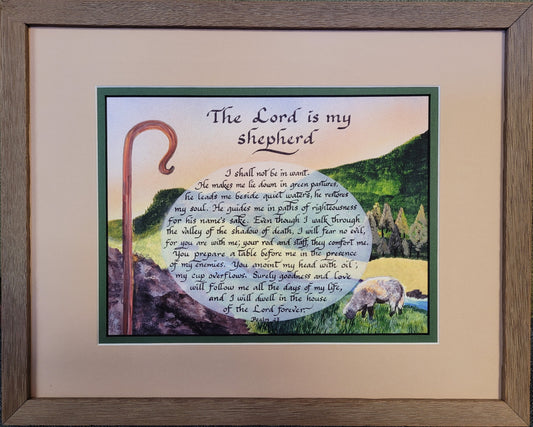 The Lord is my
shepherd
I shall not be in want.
He makes me lie down in green pastures,
he leads me beside quiet waters, he restores
my soul. He guides me in paths of righteousness
for his name's sake. Even though I walk through
the valley of the shadow of death, I will fear no evil,
for you are with me; your rod and staff, they comfort me.
You prepare a table before me in the presence
of my enemies. You anoint my head with oil;
my cup overflows. Surely goodness and love
will follow me all the days of my life,
and I will dwell in the house
of the Lord forever.
Psalm 23